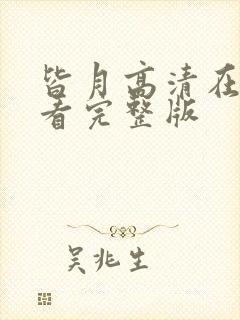 皆月高清在
看完整版
吴兆生